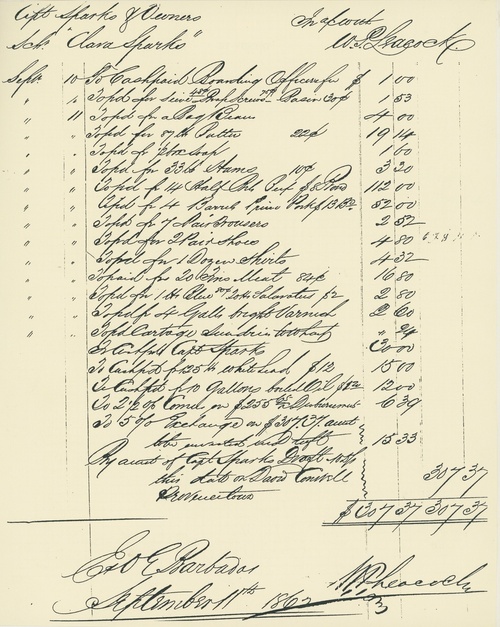 Capt Sparks & Owners
In a/c with
Sch: "Clara Sparks"
W. P. Leacock
Sept. 10 To Cash paid Boarding Officers fee $ 1 00
" " To pd for Screws Basin 30¢ 1 53
" 11 To pd for a Bag Beans 4 00
" " To pd for 87 lb Butter 22¢ 19 14
" " To pd for 1 box Soap 1 00
" " To pd for 33 lb Hams 10¢ 3 30
" " To pd for 14 Half Bbl Beef $8 112 00
" " To pd for 4 Barrels Prime Pork $13 52 00
" " To pd for 7 Pair Trousers 2 52
" " To pd for 2 Pair Shoes 4 80
" " To pd for 1 Dozen Shirts 4 32
" " To paid for 20 Meat 84¢ 16 80
" " To pd for 1 lb Blue Salaratus 2 80
" " To pd for 4 Galls bright Varnish 2 60
" " To pd Cartage Sundries to wharf " 24
Capt Sparks 30 00
To Cash pd for 125 lb white Lead $12 15 00
To Cash pd for 10 Gallons boiled Oil 12 00
To 2 1/2 % Comn on $255 Disbursements 6 39
To 5 % Exchange on $307.37 amt
15 33
By amount of Capt Sparks Draft
this date on David Conwell
Provincetown
307 37
$307 37 307 37
E & O E Barbados
September 11th 1862
W P Leacock